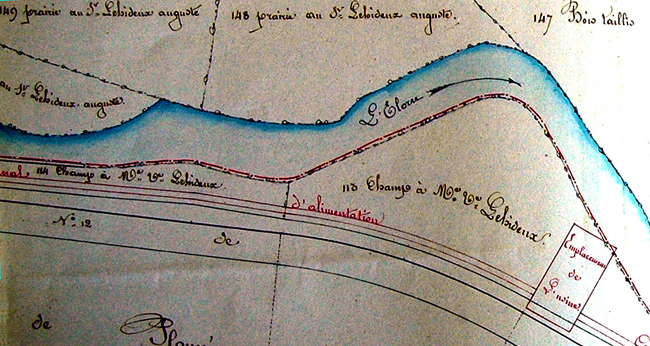 149 prairie au Sr. Lebideux auguste
148 prairie au Sr. Lebideux auguste.
147 Bois taillis
au Sr. Lebideux auguste.
L'Elorn
114 Champ à Me. Ve. Lebideux.
113 Champ à Me. Ve. Lebideux.
nal
d'alimentation
No. 12
de
Emplacement
de
L'usine
de